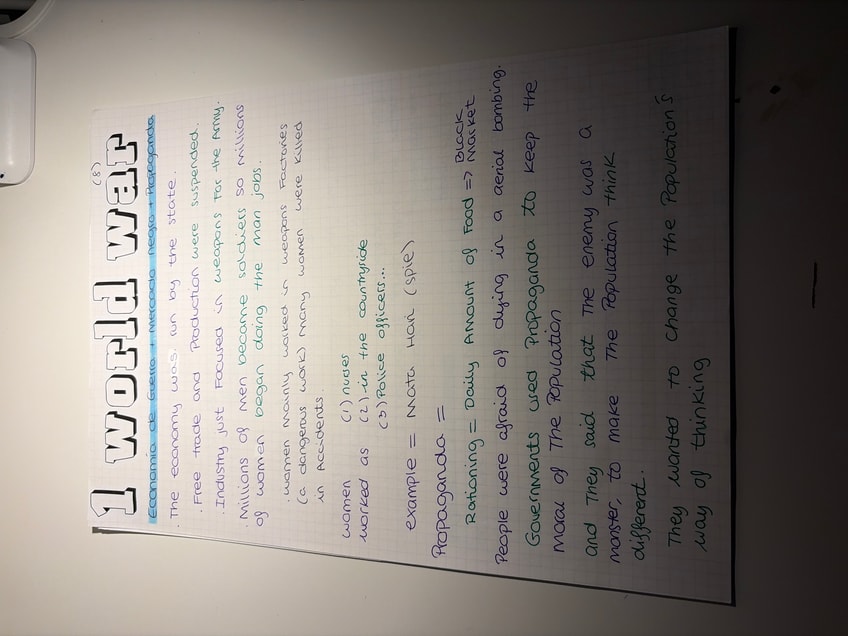 (8)
1 world war
Economía de Guerra + Mercado negro + Propaganda
. The economy was run by the state.
. Free trade and Production were suspended.
. Industry just Focused in weapons for the Army.
. Millions of men became soldiers so millions
of women began doing the man jobs.
. women mainly worked in weapons Factories
(a dangerous work) many women were killed
in Accidents.
women (1) nurses
worked as (2) in the countryside
(3) Police officers...
example = Mata Hari (spie)
Propaganda =
Rationing = Daily Amount of Food => Black Market
People were afraid of dying in a aerial bombing.
Governments used Propaganda to keep the
moral of The Population
and They said that The enemy was a
monster, to make The Population think
different.
They wanted to change the Population's
way of thinking